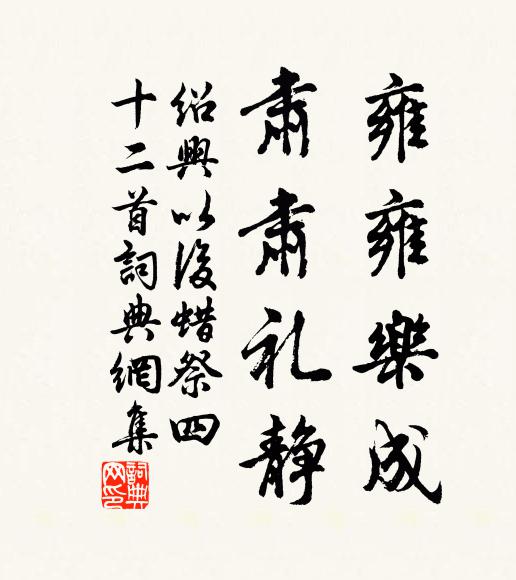 雍雍樂成
肅肅礼静
紹興以後蜡祭四
十二首詞典網集
詞典网印